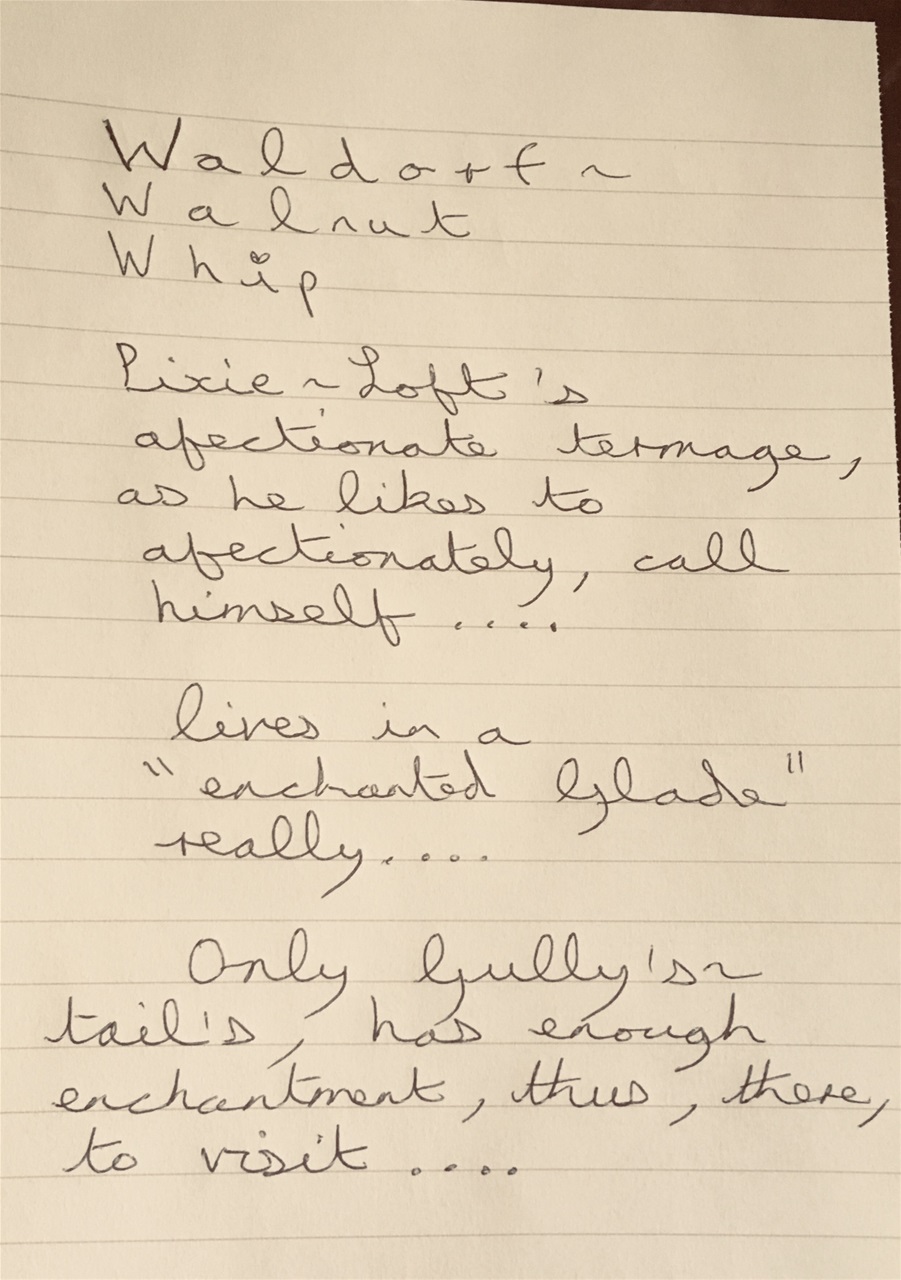 Waldorf ~
Walnut
Whip
Pixie ~ Loft's
afectionate termage,
as he likes to
afectionately, call
himself ....
lives in a
"enchanted Glade"
really....
Only Gully's ~
tail's, has enough
enchantment, thus, there,
to visit ....